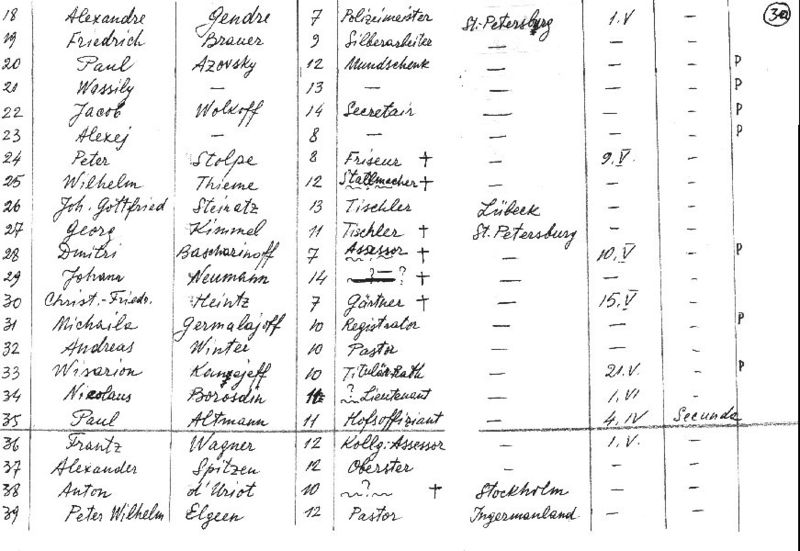 3a
18 Alexandre Gendre 7 Polizeimeister St. Petersburg 1. V –
19 Friedrich Brauer 9 Silberarbeiter – – –
20 Paul Azovsky 12 Mundschenk – – – P
21 Wassily – 13 – – – – P
22 Jacob Wolkoff 14 Secretair – – – P
23 Alexej – 8 – – – – P
24 Peter Stolpe 8 Friseur † – 9. V. –
25 Wilhelm Thieme 12 Stallmacher † – – –
26 Joh. Gottfried 13 Tischler Lübeck – –
27 Georg Kimmel 11 Tischler † St. Petersburg – –
28 Dmitri Bascharinoff 7 Assessor † – 10. V – P
29 Johann Neumann 14 ? † – – –
30 Christ.-Friedr. Heintz 7 Gärtner † – 15. V –
31 Michaila Germalajoff 10 Registrator – – – P
32 Andreas Winter 10 Pastor – – –
33 Wisarion 10 Titulärrath – 21. V. – P
34 Nicolaus Borosdin ? Lieutenant – 1. VI –
35 Paul Altmann 11 Hofsoffiziant – 4. IV Secunda
36 Frantz Wagner 12 Kollg: Assessor – 1. V. –
37 Alexander Spitzen 12 Oberster – – –
38 Anton d'Uriot 10 ? † Stockholm – –
39 Peter Wilhelm Elgeen 12 Pastor Ingermanland – –